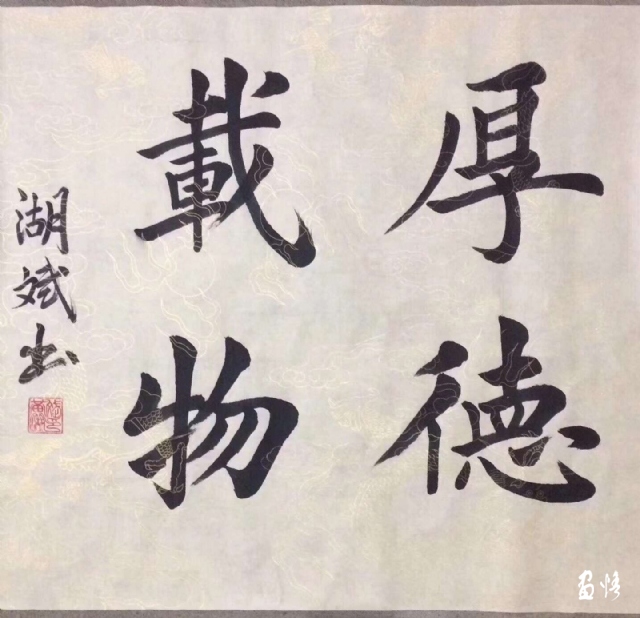 厚德
載物
湖斌书